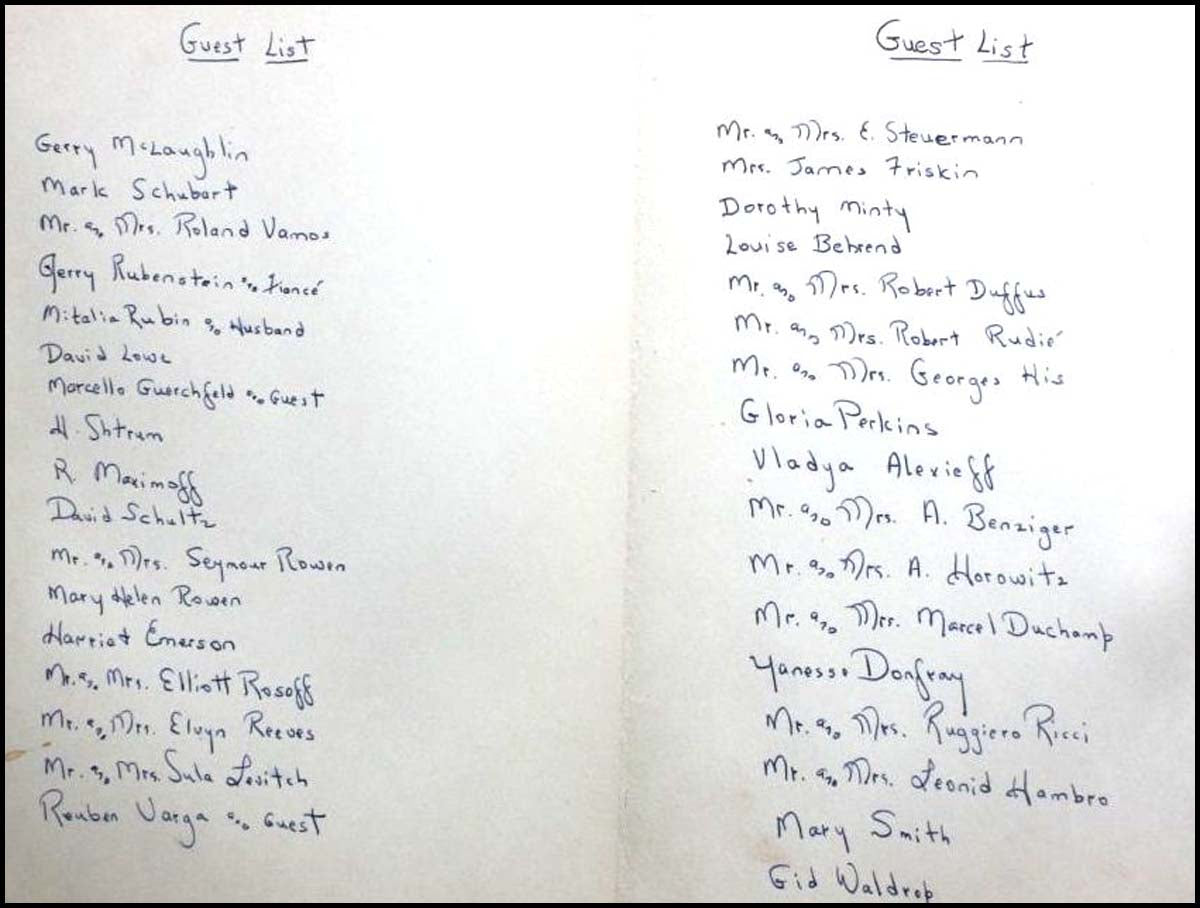 Guest List
Gerry McLaughlin
Mark Schubart
Mr. & Mrs. Roland Vamos
Gerry Rubenstein & Fiancé
Mitalia Rubin & Husband
David Lowe
Marcello Guerchfeld & Guest
H. Shtrum
R. Maximoff
David Schultz
Mr. & Mrs. Seymour Rowen
Mary Helen Rowen
Harriet Emerson
Mr. & Mrs. Elliott Rosoff
Mr. & Mrs. Elvyn Reeves
Mr. & Mrs. Sula Levitch
Reuben Varga & Guest
Guest List
Mr. & Mrs. E. Steuermann
Mrs. James Friskin
Dorothy Minty
Louise Behrend
Mr. & Mrs. Robert Duffus
Mr. & Mrs. Robert Rudié
Mr. & Mrs. Georges His
Gloria Perkins
Vladya Alexieff
Mr. & Mrs. A. Benziger
Mr. & Mrs. A. Horowitz
Mr. & Mrs. Marcel Duchamp
Yanesso Donfray
Mr. & Mrs. Ruggiero Ricci
Mr. & Mrs. Leonid Hambro
Mary Smith
Gid Waldrop